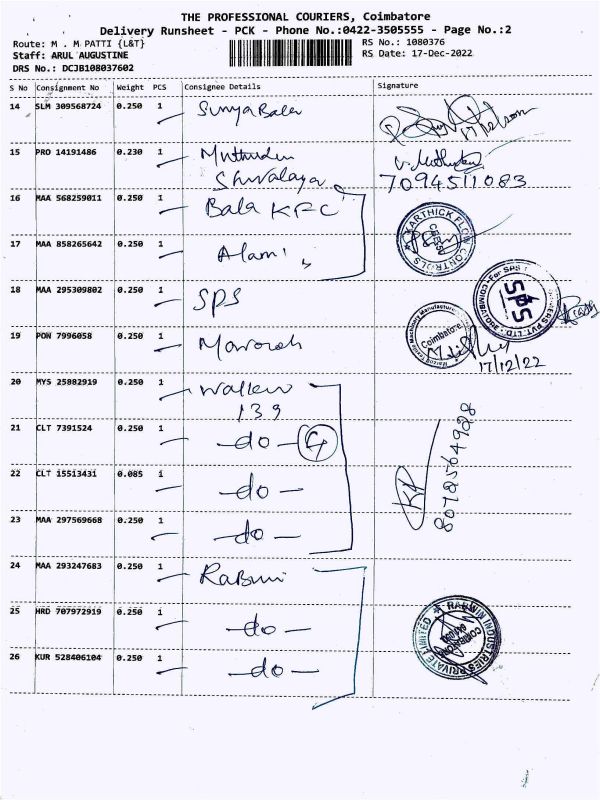 THE PROFESSIONAL COURIERS, Coimbatore
Delivery Runsheet - PCK - Phone No.:0422-3505555 - Page No.:2
Route: M . M PATTI {L&T}
RS No.: 1080376
Staff: ARUL AUGUSTINE
RS Date: 17-Dec-2022
DRS No.: DCJB108037602
S No Consignment No Weight PCS Consignee Details Signature
14 SLM 309568724 0.250 1 SuryaBala
15 PRO 14191486 0.230 1
Shivalaya
7094511083
16 MAA 568259011 0.250 1 Bala KFC
KARTHICK FLOW CONTROLS
17 MAA 858265642 0.250 1 Alami
18 MAA 295309802 0.250 1 SPS
For SPS
SPS
PVT. LTD.
19 PON 7996058 0.250 1
Coimbatore
17/12/22
20 MYS 25882919 0.250 1
139
21 CLT 7391524 0.250 1 -do- 4
22 CLT 15513431 0.085 1 -do-
8072564928
23 MAA 297569668 0.250 1 -do-
24 MAA 293247683 0.250 1 Rabwin
25 HRD 707972919 0.250 1 -do-
RABWIN INDUSTRIES PRIVATE LIMITED
26 KUR 528406104 0.250 1 -do-